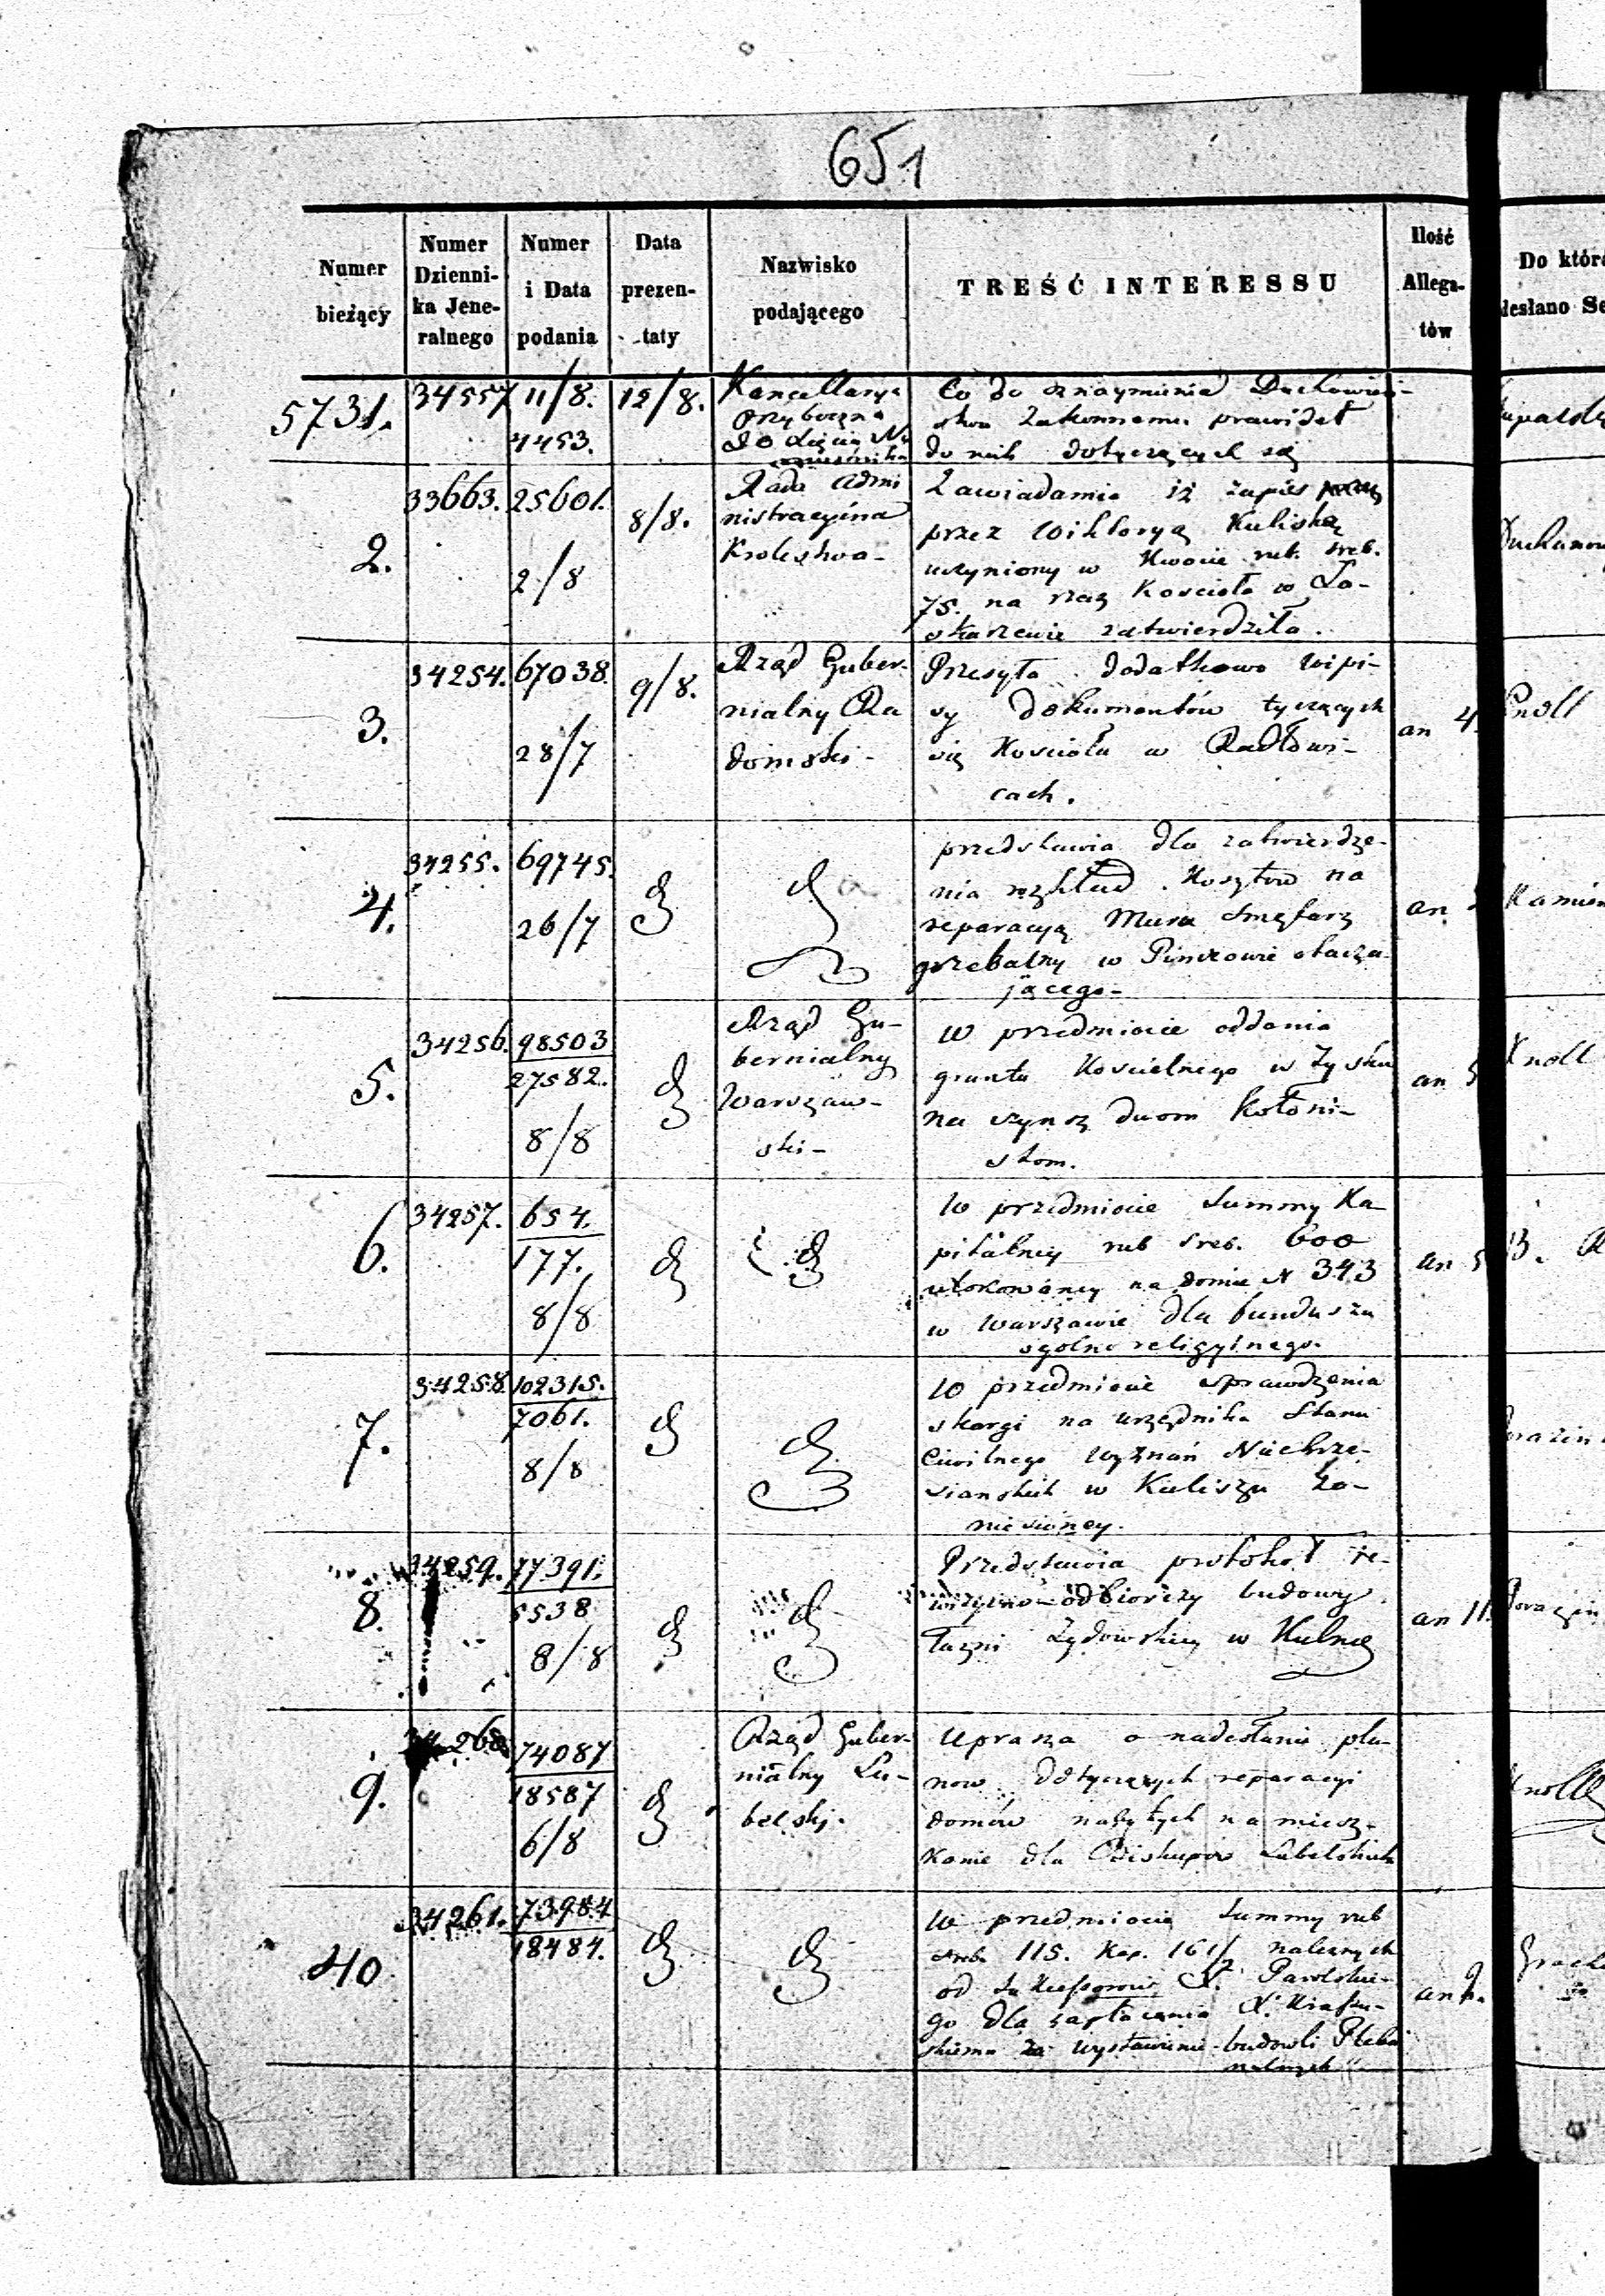 651
Numer bieżący
Numer Dzienni-
ka Jene-
ralnego
Numer
i Data
podania
Data
prezen-
taty
Nazwisko
podającego
TREŚĆ INTERESSU
Ilość
Allega-
tów
Do któr
desłano Se
5731.
34557
11/8.
4453.
12/8.
Kancellarya
Przyboczna
Co do oznaymienia Duchowień-
stwu Zakonnemu prawideł
do nich dotyczących się
2.
33663.
25601.
2/8
8/8.
Rada Admi
nistracyina
Krolestwa-
Zawiadamia iż zapis
przez Wiktoryą Kuliską
uczyniony w Kwocie rub. sreb.
75. na rzecz Koscioła w Do-
zatwierdziła.
3.
34254.
67038.
28/7
9/8.
Rząd Guber-
nialny Ra
domski-
Przesyła dodatkowo wipi-
sy dokumentów tyczących
się Kościoła w Radłowi-
cach.
an 4.
Knoll
4.
34255.
69745.
26/7
przedstawia dla zatwierdze-
nia rozkład Kosztow na
reparacyą Muru Smętarz
grzebalny w Pinczowie otacza-
jącego-
an
5.
34256.
98503
27582.
8/8
Rząd Gu-
bernialny
Warszaw-
ski-
W przedmiocie oddania
gruntu Kościelnego w Żysku
na czynsz dwom Kołoni-
stom.
an 5
Knoll
6.
34257.
654.
177.
8/8
W przedmiocie Summy Ka-
pitalney rub sreb. 600
ulokowaney na domie N 343
w Warszawie dla funduszu
ogolno religyinego.
an 5
B. R
7.
34258.
102315.
7061.
8/8
W przedmiocie sprawdzenia
skargi na urzędnika Stanu
Cywilnego Wyznań Niechrze-
sianskich w Kaliszu Za-
niesioney.
8.
34259.
77391.
5538
8/8
Przedstawia protokoł re-
wizyino-odbiorczy budowy
łazni Żydowskiey w Kutnie
an 11.
9.
34260
74087
18587
6/8
Rząd Guber-
nialny Lu-
belski.
Uprasza o nadesłanie pla-
now dotyczących reparacyi
domów nabytych na miesz-
kanie dla Biskupow Lubelskich
Knoll
40
34261.
73984
18484.
W przedmiocie Summy rub
sreb. 115. Kop. 16 1/2 należnych
od Sukcessorow X. Pawelskie-
go dla zapłacenia X.
za wystawienie budowli Pleba
nalnych
an